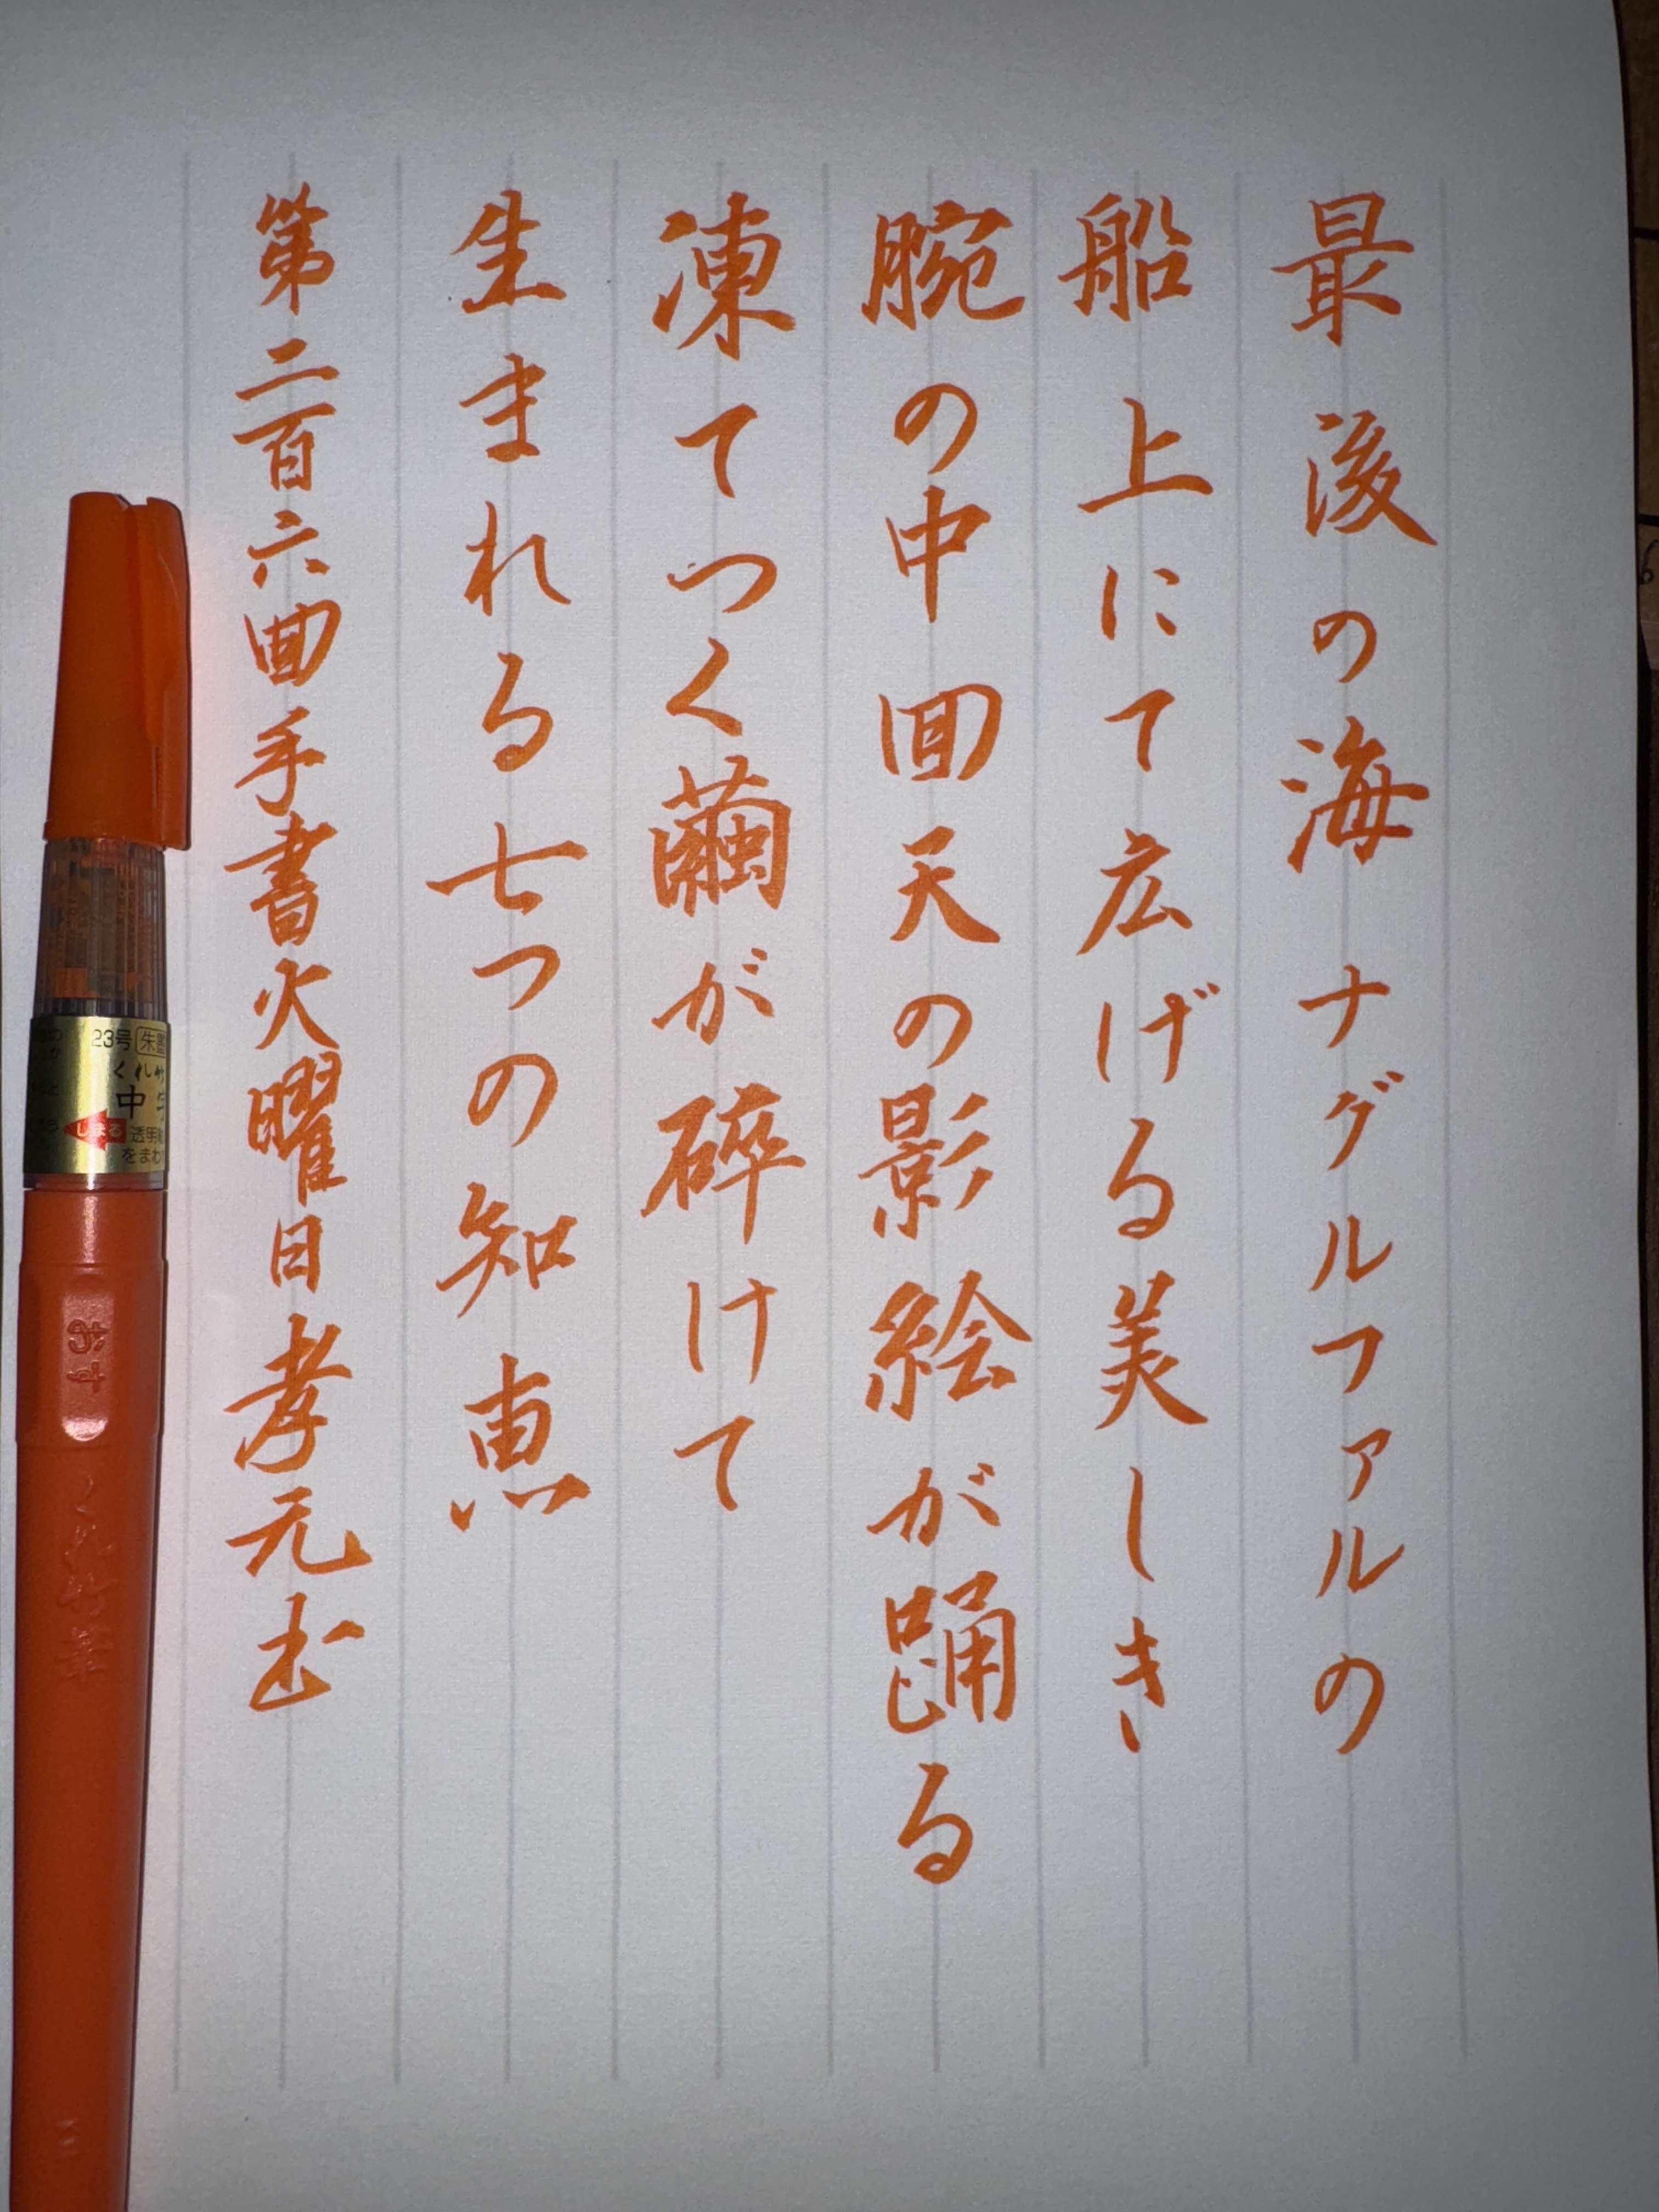 最後の海ナグルファルの
船上にて広げる美しき
腕の中回天の影絵が踊る
凍てつく繭が砕けて
生まれる七つの知恵
第二百六回手書火曜日孝元書
23号 朱墨
くれ竹
中字
しまる
透明
をまわ
おす
くれ竹筆